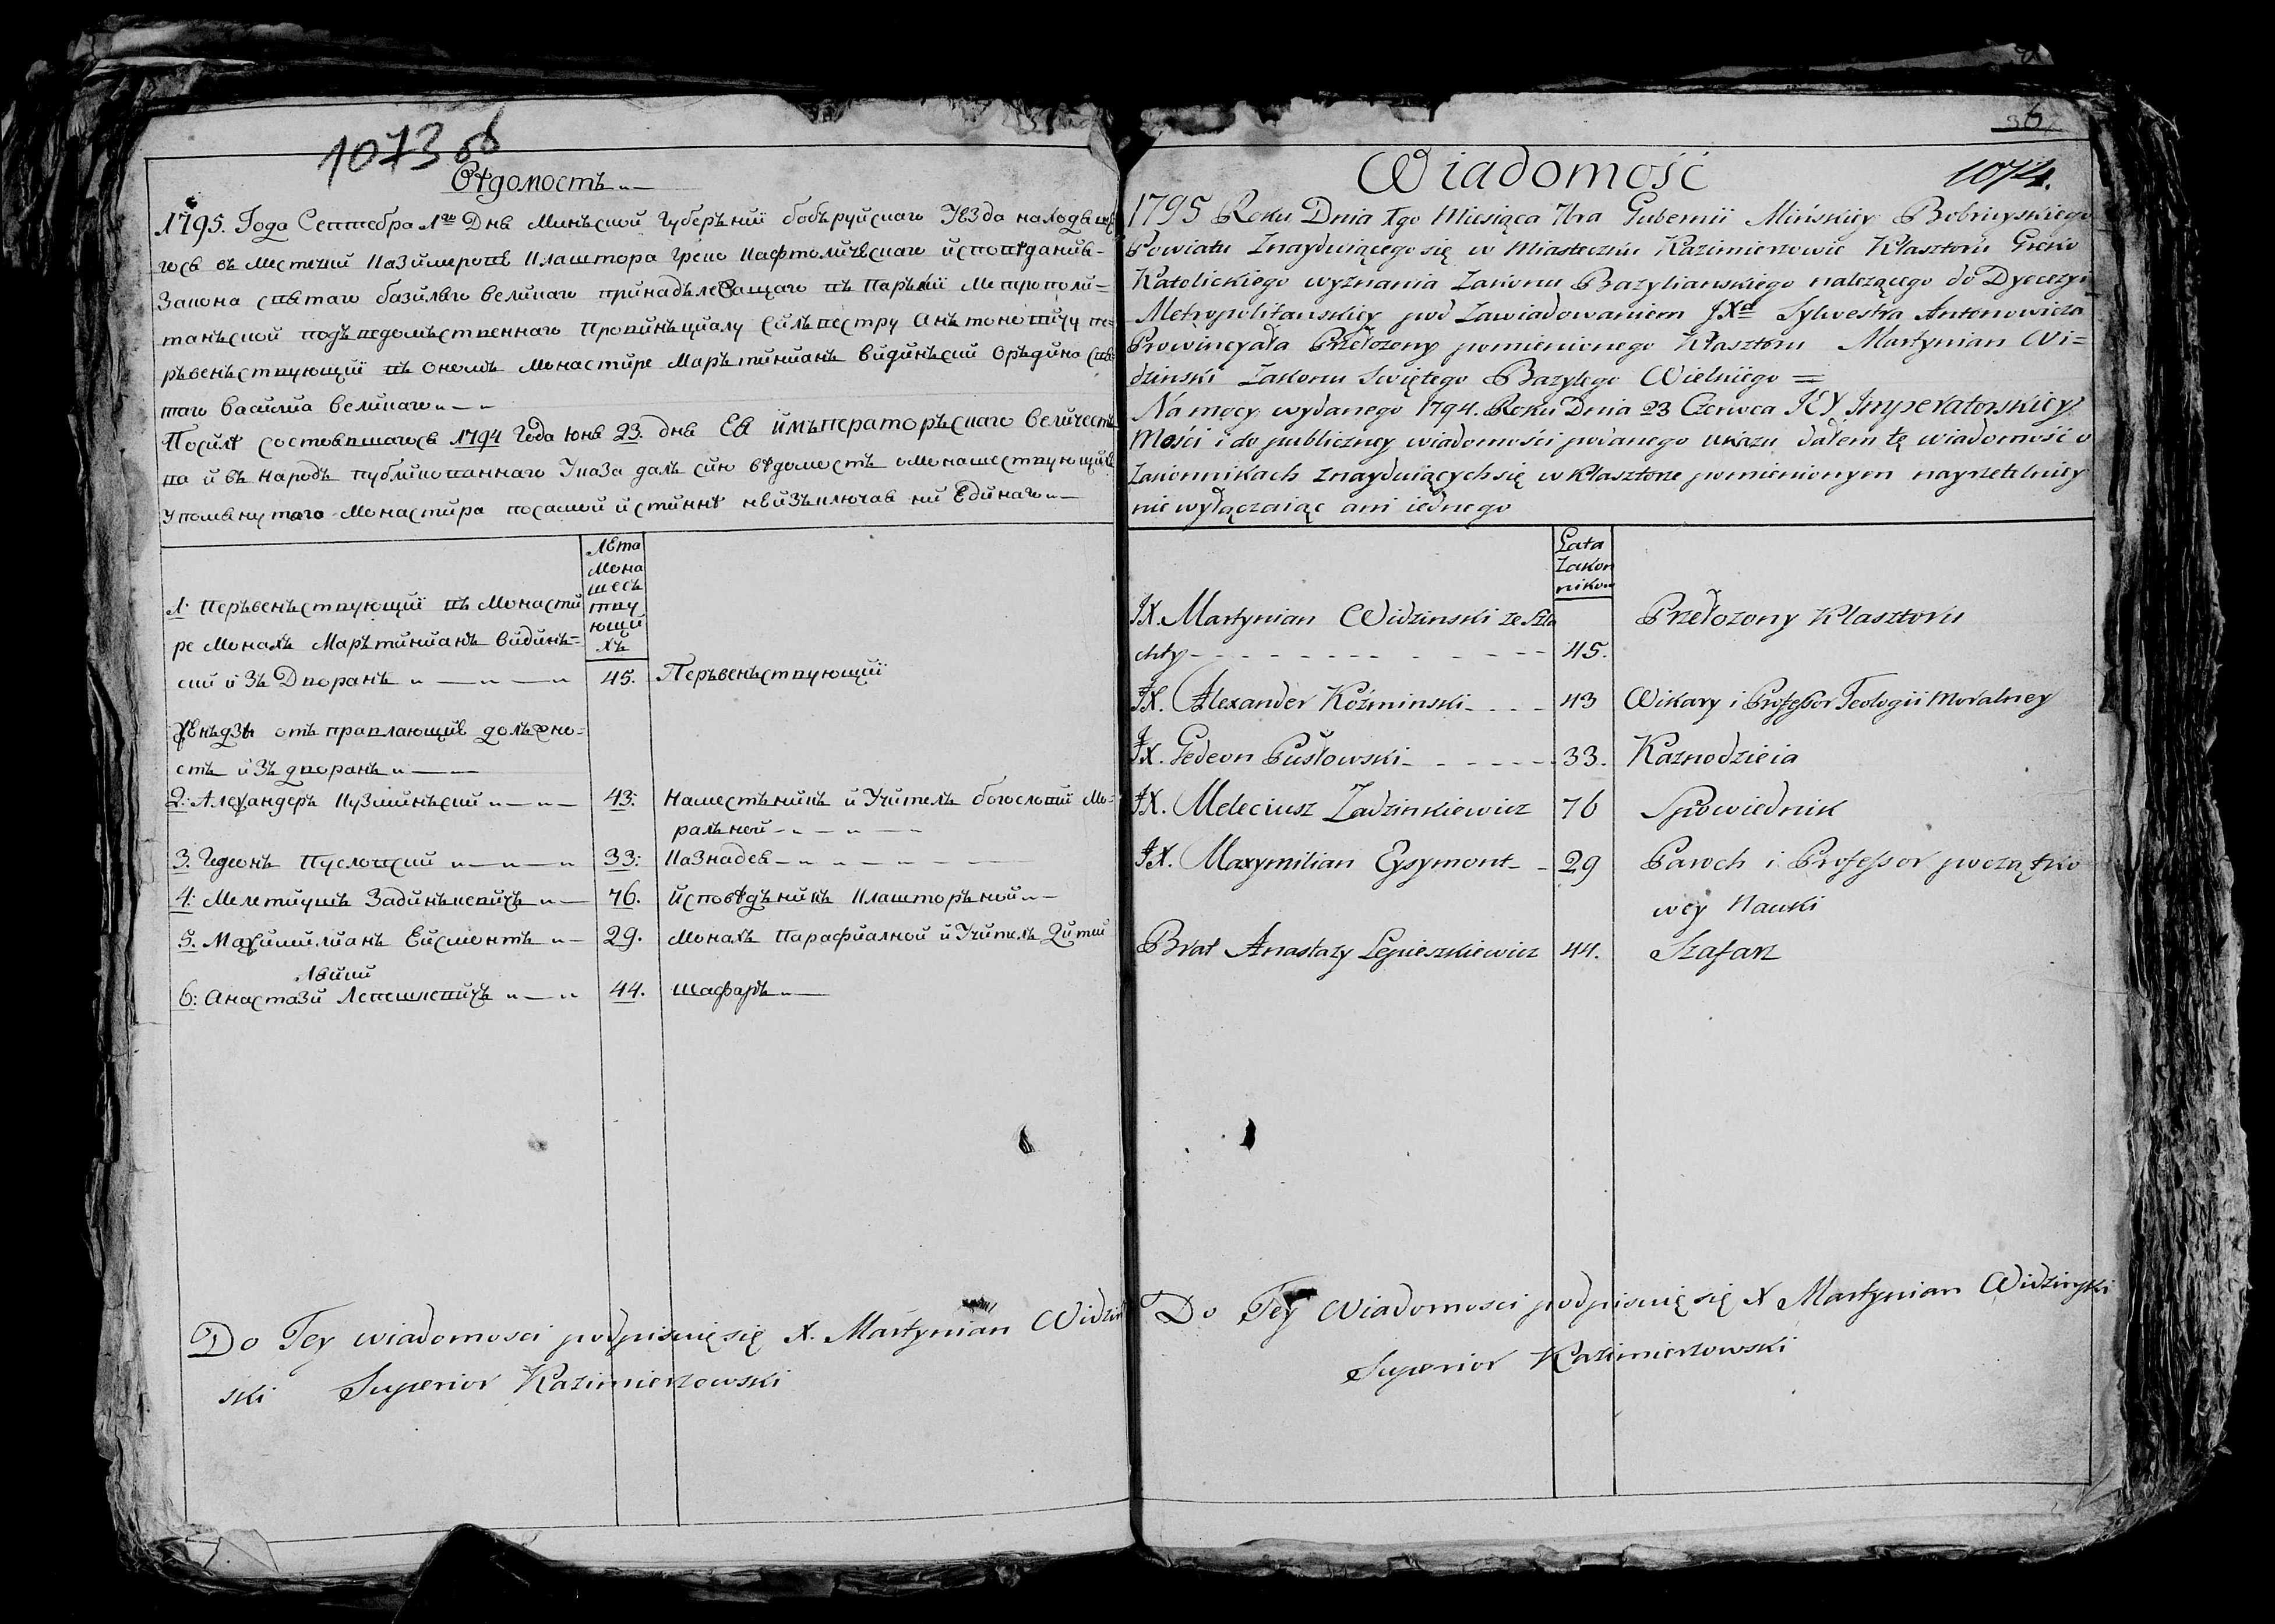 1073 об
Вѣдомостъ
1795. Года Септебра 1го Дня Минъской Губерънїи бобъруйскаго Уѣзда находящя
гося въ местечки Казимеровѣ Клаштора Греко Кафтолическаго исповѣдания
Закона святаго базиляго великаго принадълежащаго въ Паръхїи Метрополи=
танъской подъ ведомъственнаго Провинъциалу Сильвестру Анътоновичу пе=
ръвенъствующїй въ ономъ монастире Марътиниянъ видинъский оръдина свя
таго василиа великаго
По силѣ состоявшагося 1794 Года Юня 23. дня Ея имъператоръскаго величестъ
ва и въ народъ публикованнаго Указа далъ сию вѣдомостъ о монашествующихъ
Упомянутаго Монастира по самой истиннѣ не изъключая ни Единаго
Лѣта
Мона
шесъ
тву
ющи
хъ
1. Перъвенъствующїй въ Монасти
ре монахъ Марътиниянъ видинъ=
ский изъ Дворанъ 45. Перъвенъствующїй
Ксенъдзы отъправляющие долъжно=
стъ изъ дворанъ
2: Александеръ Кузминъский 43: Наместъникъ и Учителъ богословїи мо=
ралъной
3. Гидеонъ Пусловский 33: Казнадея
4: Мелетиушъ Задинъкевичъ 76. Исповѣдъникъ Клашторъной
5. Максимилианъ Ейсмонтъ 29. Монахъ Парафиалной и Учителъ
6: Анастази Лепешкевичъ 44. шафаръ
Do Tey wiadomosci podpisuię się X. Martynian Widzin
ski Superior Kazimierzowski
1074.
Wiadomość
1795 Roku Dnia 1go Miesiąca 7bra Gubernii Mińskiey Bobruyskiego
Powiatu Znayduiącego się w Miasteczku Kazimierzowie Klasztoru Greko
Katolickiego wyznania Zakonu Bazylianskiego nalezącego do Dyecezyi
Metropolitańskiey pod Zawiadowaniem JXa Sylwestra Antonowicza
Prowincyała Przełozony pomienionego Klasztoru Martynian Wi=
dzinski Zakonu Swiętego Bazylego Wielkiego =
Na mocy wydanego 1794. Roku Dnia 23 Czerwca JEY Imperatorskiey
Mości i do publiczney wiadomości podanego ukazu dałem tę wiadomość o
Zakonnikach znayduiących się w Klasztorze pomienionym nayrzetelniey
nie wyłączaiąc ani iednego
Lata
Zakon
nikow
JX. Martynian Widzinski ze Szla Przełozony Klasztoru
chty 45.
JX. Alexander Kóźminski 43 Wikary i Professor Teologii Moralney
JX. Gedeon Pusłowski 33. Kaznodzieia
JX. Meleciusz Zadzinkiewicz 76 Spowiednik
JX. Maxymilian Eysymont 29 Paroch i Professor początko
wey Nauki
Brat Anastazy Lepieszkiewicz 44. Szafarz
Do Tey Wiadomosci podpisuię się X Martynian Widzinski
Superior Kazimierzowski